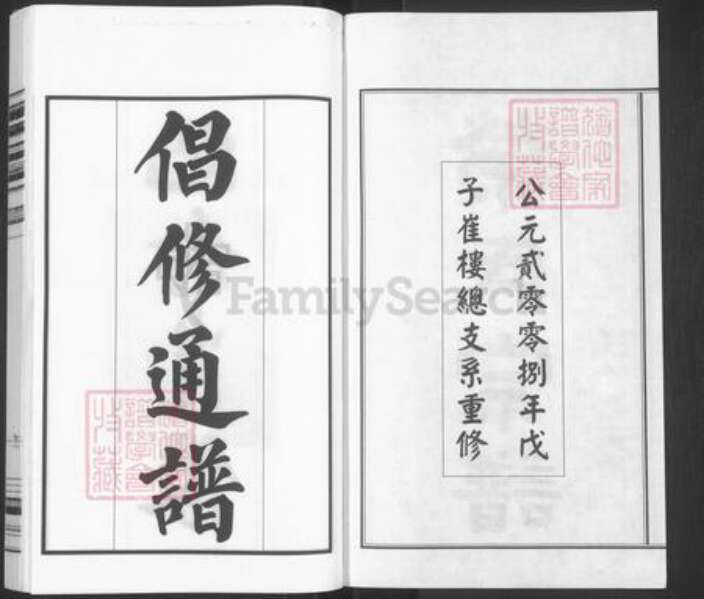 公元貳零零捌年戊
子崔樓總支系重修
倡修通譜
FamilySearch